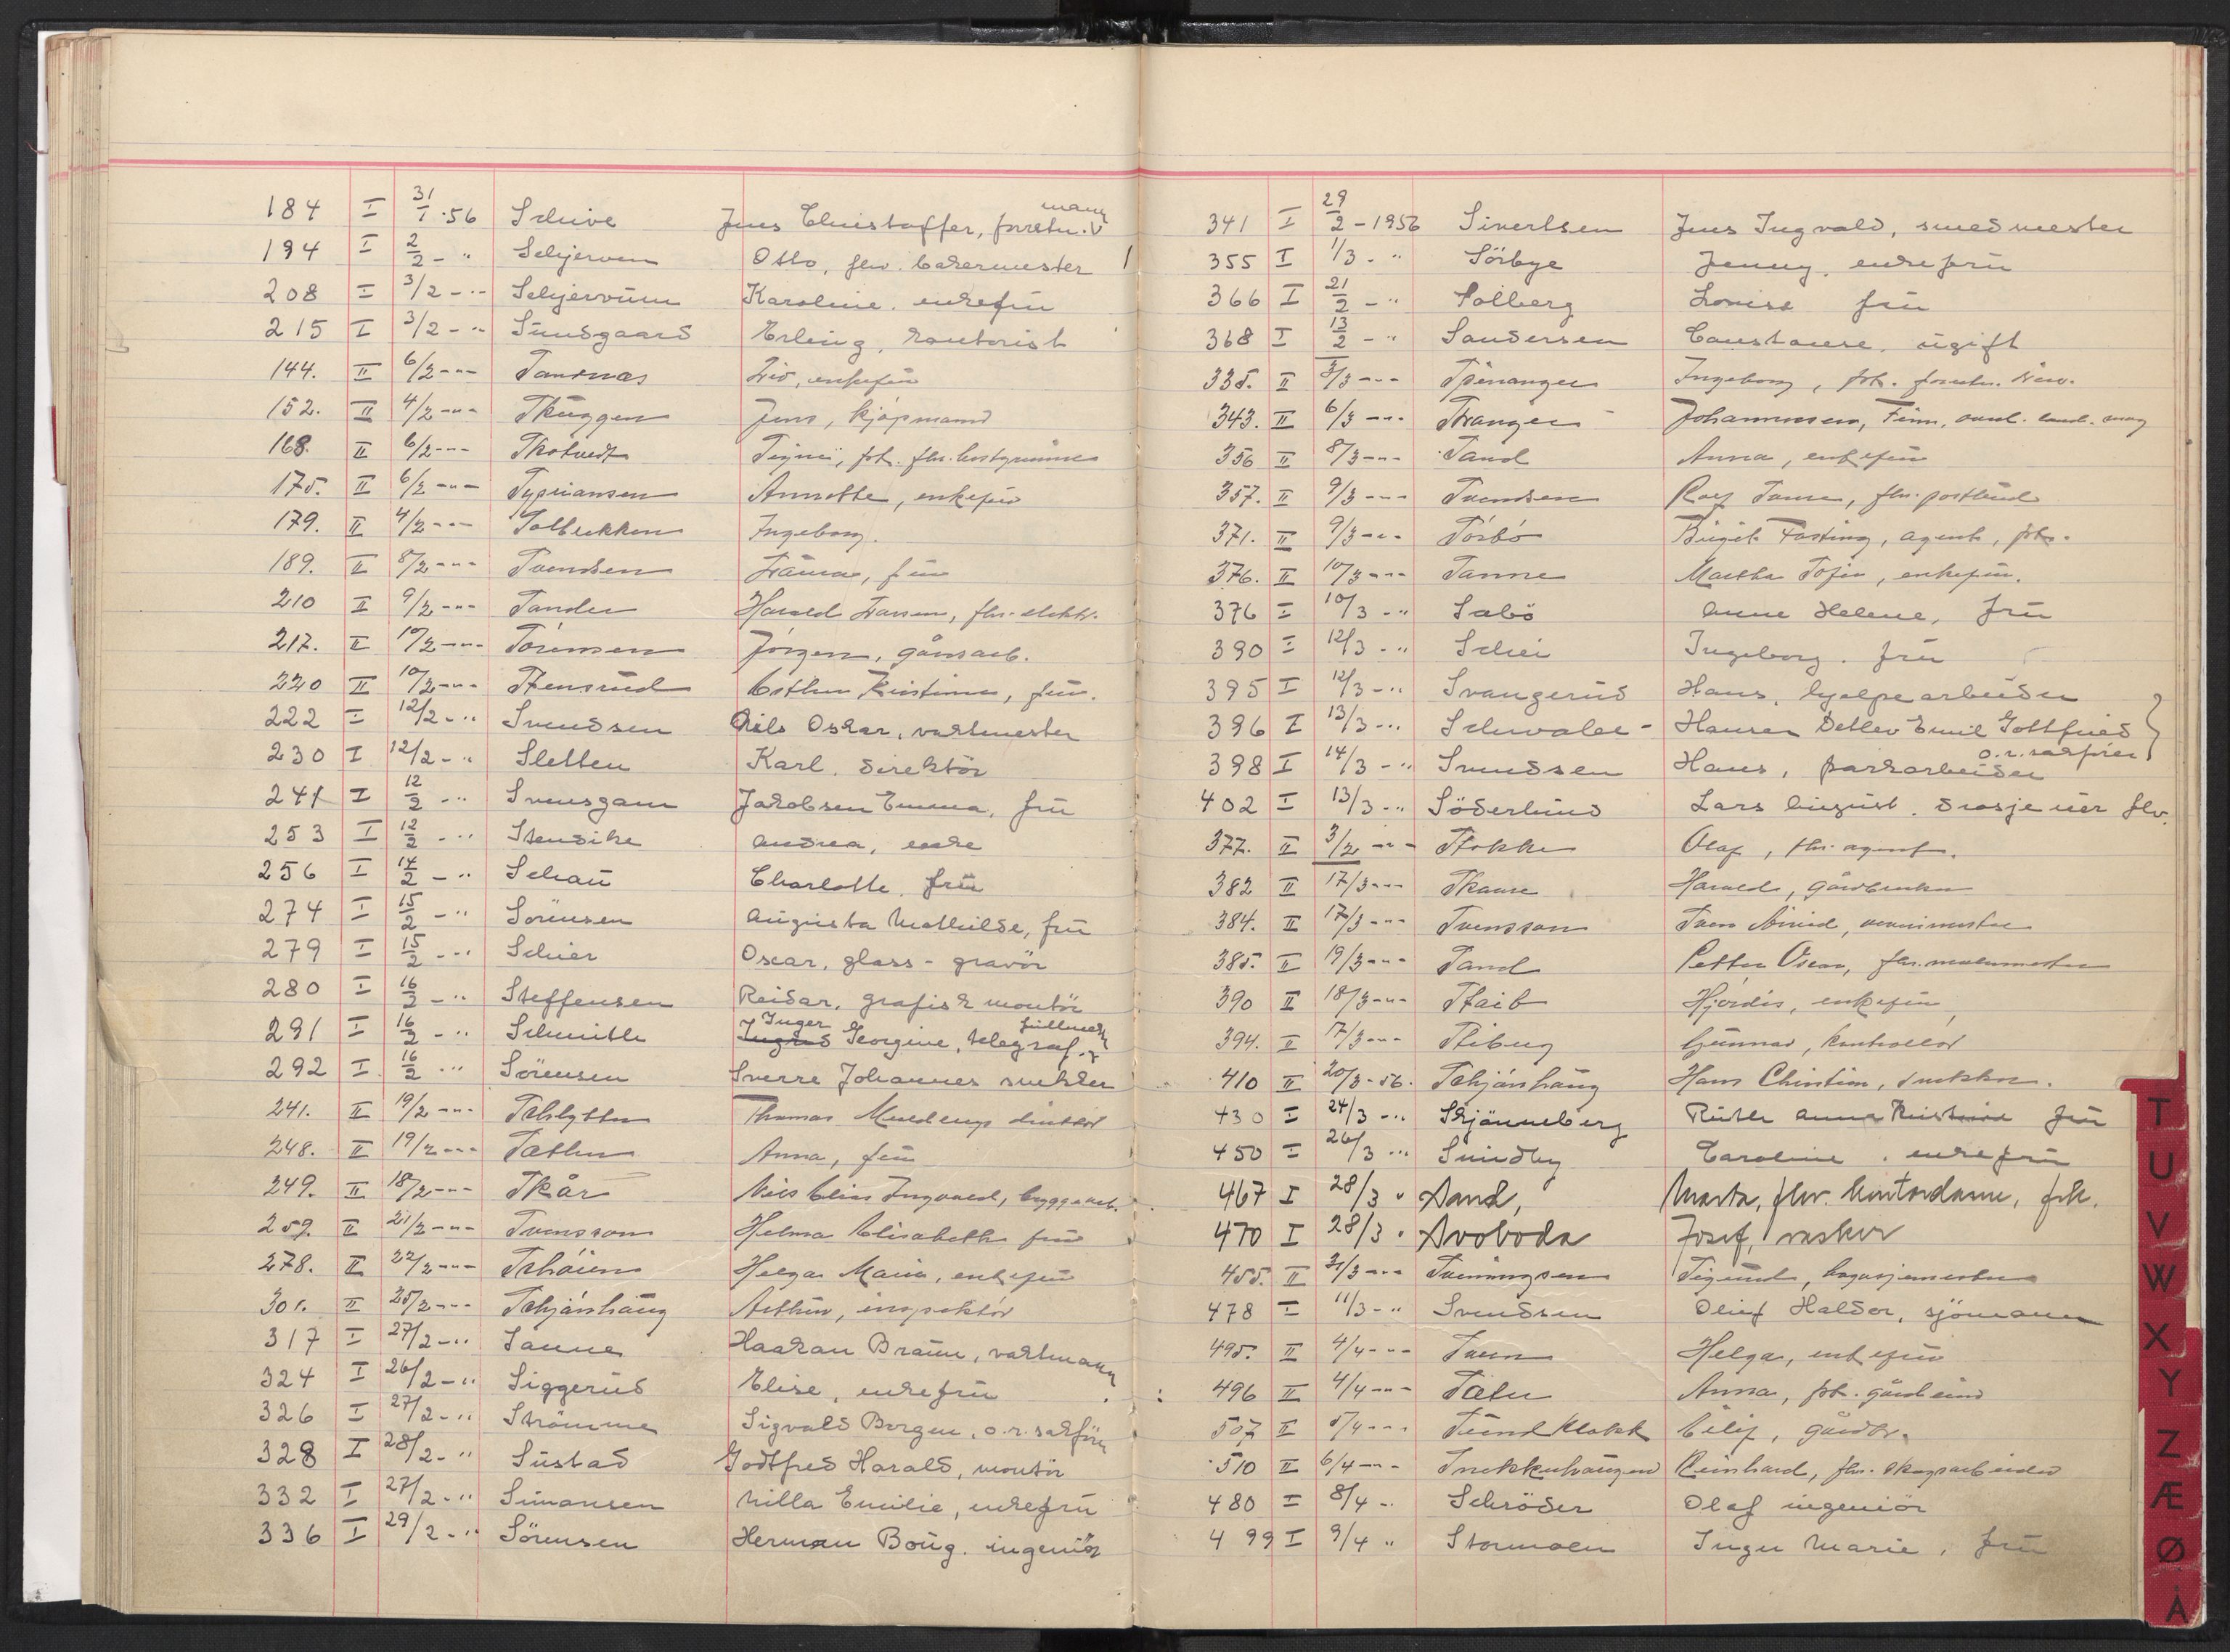 184 I 31/1-56 Schive Jens Christoffer, forretn.mann
194 I 2/2 - " Schjerven Otto, fhv. bakermester
208 I 3/2 - " Schjervum Karoline. enkefru
215 I 3/2 - " Sundgaard Erling, kontorist
144. II 6/2 - " - Sandnæs Liv, enkefru
152. II 4/2 - " - Skuggen Jens, kjøpmand
168. II 6/2 - " - Skotvedt Signe, frk. fhv. bestyrerinne
175. II 6/2 - " - Sypriansen Annette, enkefru
179. II 4/2 - " - Solbrekken Ingeborg.
189. II 8/2 - " - Svendsen Laura, fru
210 II 9/2 - " - Sander Harald Larsen, fhv. elektr.
217. II 10/2 - " - Sörensen Jörgen, gårdarb.
220 II 10/2 - " - Stensrud Esther Kristine, fru.
222 I 12/2 - " Svendsen Nils Oskar, vaktmester
230 I 12/2 - " Sletten Karl. direktör
241 I 12/2 - " Svensgam Jakobsen Emma, fru
253 I 12/2 - " Stensike Andrea, enke
256 I 14/2 - " Schau Charlotte. fru
274 I 15/2 - " Sörensen Augusta Mathilde, fru
279 I 15/2 - " Schier Oscar, glass-gravör
280 I 16/2 - " Steffensen Reidar, grafisk montör
291 I 16/2 - " Schmith Inger Georgine, telegraf.fullmekt.
292 I 16/2 " Sörensen Sverre Johannes snekker
241. II 19/2 - " - Schlytter Thomas direktör
248. II 19/2 - " - Sæther Anna, fru
249. II 18/2 - " - Skår Nils Elias Ingvald, byggearb.
259. II 21/2 - " - Svensson Helma Elisabeth fru
278. II 22/2 - " - Schöien Helga Marie, enkefru
301. II 25/2 - " - Schjánhaug Arthur, inspektör
317 I 27/2 - " Sanne Haakan Braune, vaktmann
324 I 26/2 - " Siggerud Elise, enkefru
326 I 27/2 - " Strömme Sigvald Bergen, o.r.sakförer
328 I 28/2 - " Sustad Godtfred Harald, montör
332 I 27/2 - " Simansen Milla Emilie, enkefru
336 I 29/2 - " Sörensen Herman Boug. ingeniör
341 I 29/2 - 1956 Sivertsen Jens Ingvald, smedmester
355 I 1/3 - " Sörbye Jenny, enkefru
366 I 21/2 - " Solberg Lovise fru
368 I 13/2 - " Sandersen Constance. ugift
335. II 3/3 - " - Spenanger Ingeborg, frk. forretn. driv.
343. II 6/3 - " - Stranger Johannesen, Finn,
356 II 8/3 - " - Sand Anna, enkefru
357. II 9/3 - " - Svendsen Roef fhv. postbud
371. II 9/3 - " - Sörbö Birgit Fasting, agent, frk.
376. II 10/3 - " - Sanne Martha Sofie, enkefru.
376 I 10/3 - " Sabö Anne Helene, fru
390 I 12/3 - " Schei Ingeborg. fru
395 I 12/3 - " Svangerud Hans, hjelpearbeider
396 I 13/3 - " Schwalbe - Hansen Detlev Emil Gottfried
o.r.sakförer
398 I 14/3 - " Svendsen Hans, parkarbeider
402 I 13/3 - " Söderlund Lars August. drosjeeier fhv.
377. II 3/2 - " - Stokke Olaf, fhv. agent.
382 II 17/3 - " - Skaare Harald, gårdbruker
384. II 17/3 - " - Svensson Sven
385. II 19/3 - " - Sand Petter Oscar, fhv. malermester
390 II 18/3 - " - Staib Hjördis, enkefru
394. II 17/3 - " - Stiberg Gunnar, kontrollör
410 II 20/3-56. Schjánhaug Hans Christian, snekker.
430 I 24/3 - " Skjönneberg Ruth Anna Kristine fru
450 I 26/3 " Sundby Caroline. enkefru
467 I 28/3 " Sand, Marta, fhv. kontordame, frk.
470 I 28/3 " Svoboda Josef, vasker
455. II 21/3 - " - Sveningsen Sigurd, bagasjemester
478 I 11/3 - " Svendsen Oluf Haldor, sjömann
495. II 4/4 - " - Sveen Helga, enkefru
496 II 4/4 - " - Sæter Anna, frk. gårdeier
507 II 5/4 - " - Sund Klokk Eilif, gårdbr.
510 II 6/4 - " - Snekkerhaugen Reinhard, fhv. skogsarbeider
480 I 8/4 - Schröder Olaf ingeniör
499 I 9/4 " Stormoen Inger Marie, fru
T
U
V
W
X
Y
Z
Æ
Ø
Å